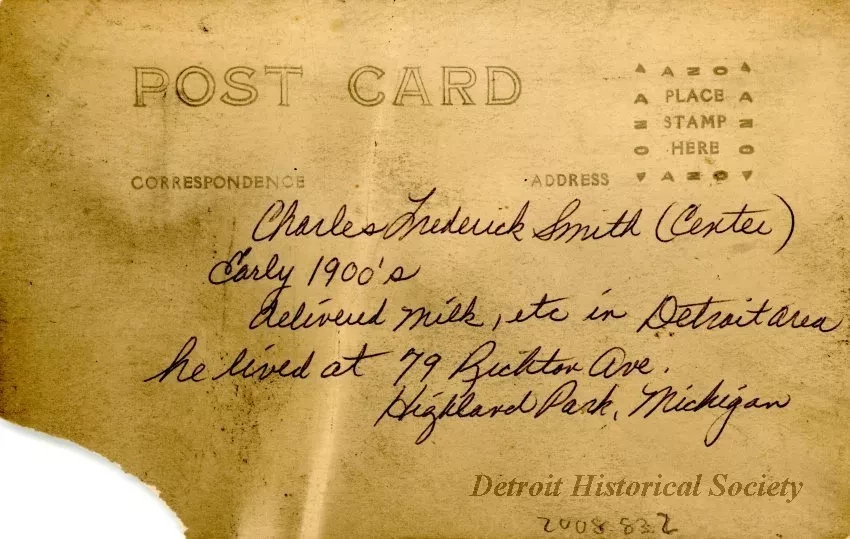 POST CARD
AZO
A PLACE A
Z STAMP Z
O HERE O
AZO
CORRESPONDENCE
ADDRESS
Charles Frederick Smith (Center)
Early 1900's
delivered milk, etc in Detroit area
he lived at 79 Richton Ave.
Highland Park, Michigan
Detroit Historical Society
2008.832